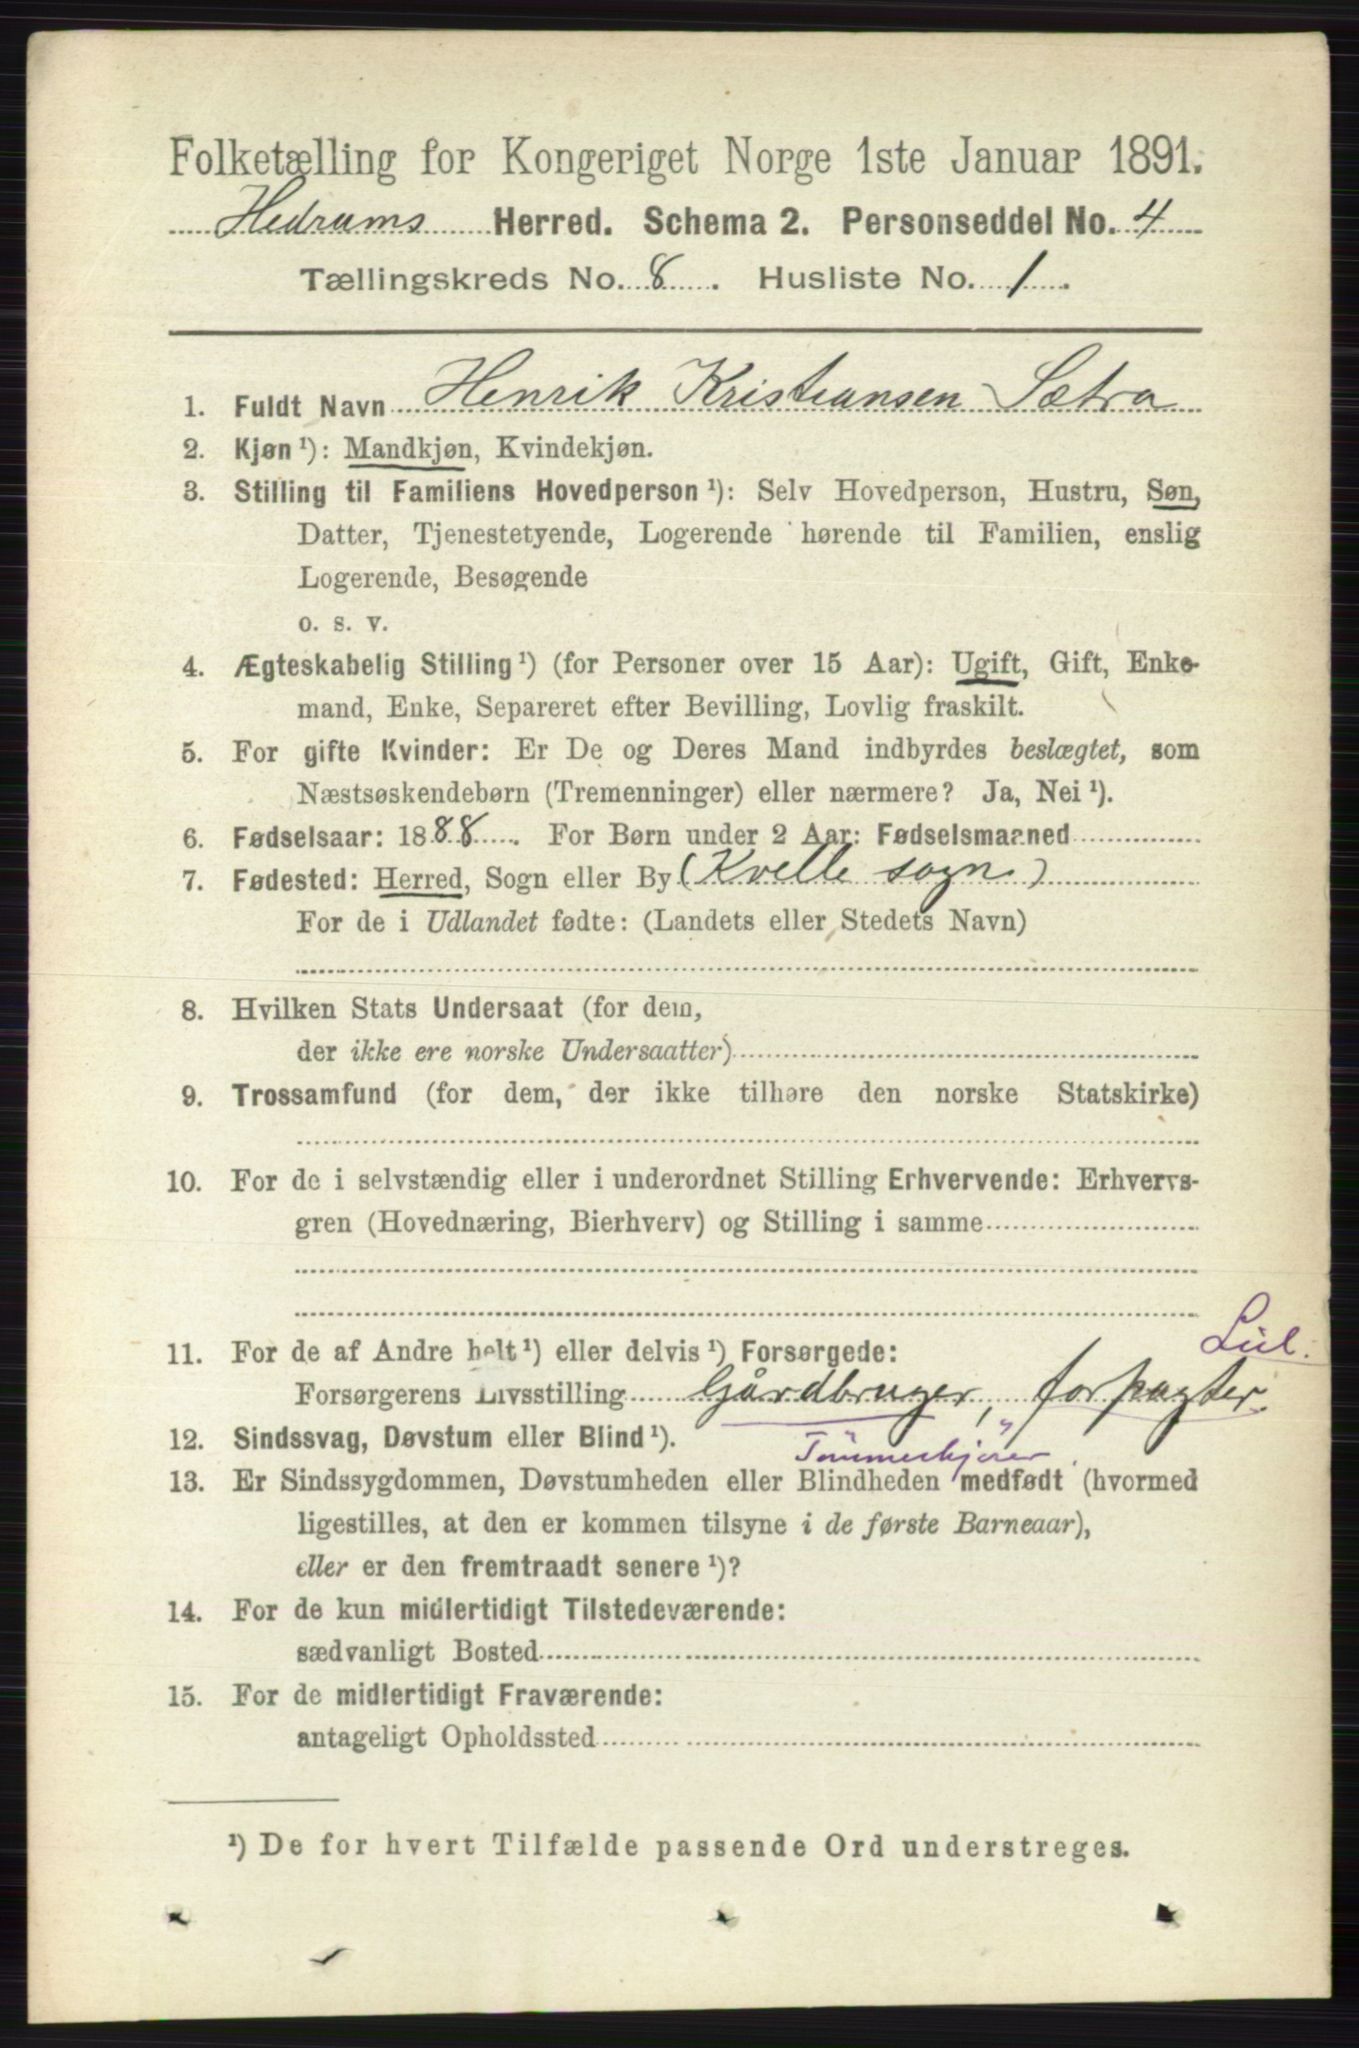 Folketælling for Kongeriget Norge 1ste Januar 1891.
Hedrums Herred. Schema 2. Personseddel No. 4
Tællingskreds No. 8. Husliste No. 1.
1. Fuldt Navn Henrik Kristiansen Sætra
2. Kjøn¹): Mandkjøn, Kvindekjøn.
3. Stilling til Familiens Hovedperson¹): Selv Hovedperson, Hustru, Søn,
Datter, Tjenestetyende, Logerende hørende til Familien, enslig
Logerende, Besøgende
o. s. v.
4. Ægteskabelig Stilling¹) (for Personer over 15 Aar): Ugift, Gift, Enke-
mand, Enke, Separeret efter Bevilling, Lovlig fraskilt.
5. For gifte Kvinder: Er De og Deres Mand indbyrdes beslægtet, som
Næstsøskendebørn (Tremenninger) eller nærmere? Ja, Nei¹).
6. Fødselsaar: 1888. For Børn under 2 Aar: Fødselsmaaned
7. Fødested: Herred, Sogn eller By (Kvelle sogn)
For de i Udlandet fødte: (Landets eller Stedets Navn)
8. Hvilken Stats Undersaat (for dem,
der ikke ere norske Undersaatter)
9. Trossamfund (for dem, der ikke tilhøre den norske Statskirke)
10. For de i selvstændig eller i underordnet Stilling Erhvervende: Erhvervs-
gren (Hovednæring, Bierhverv) og Stilling i samme
Lül.
11. For de af Andre helt¹) eller delvis¹) Forsørgede:
Forsørgerens Livsstilling Gårdbruger, forpagter.
12. Sindssvag, Døvstum eller Blind¹).
Tømmerkjører
13. Er Sindssygdommen, Døvstumheden eller Blindheden medfødt (hvormed
ligestilles, at den er kommen tilsyne i de første Barneaar),
eller er den fremtraadt senere¹)?
14. For de kun midlertidigt Tilstedeværende:
sædvanligt Bosted
15. For de midlertidigt Fraværende:
antageligt Opholdssted
¹) De for hvert Tilfælde passende Ord understreges.